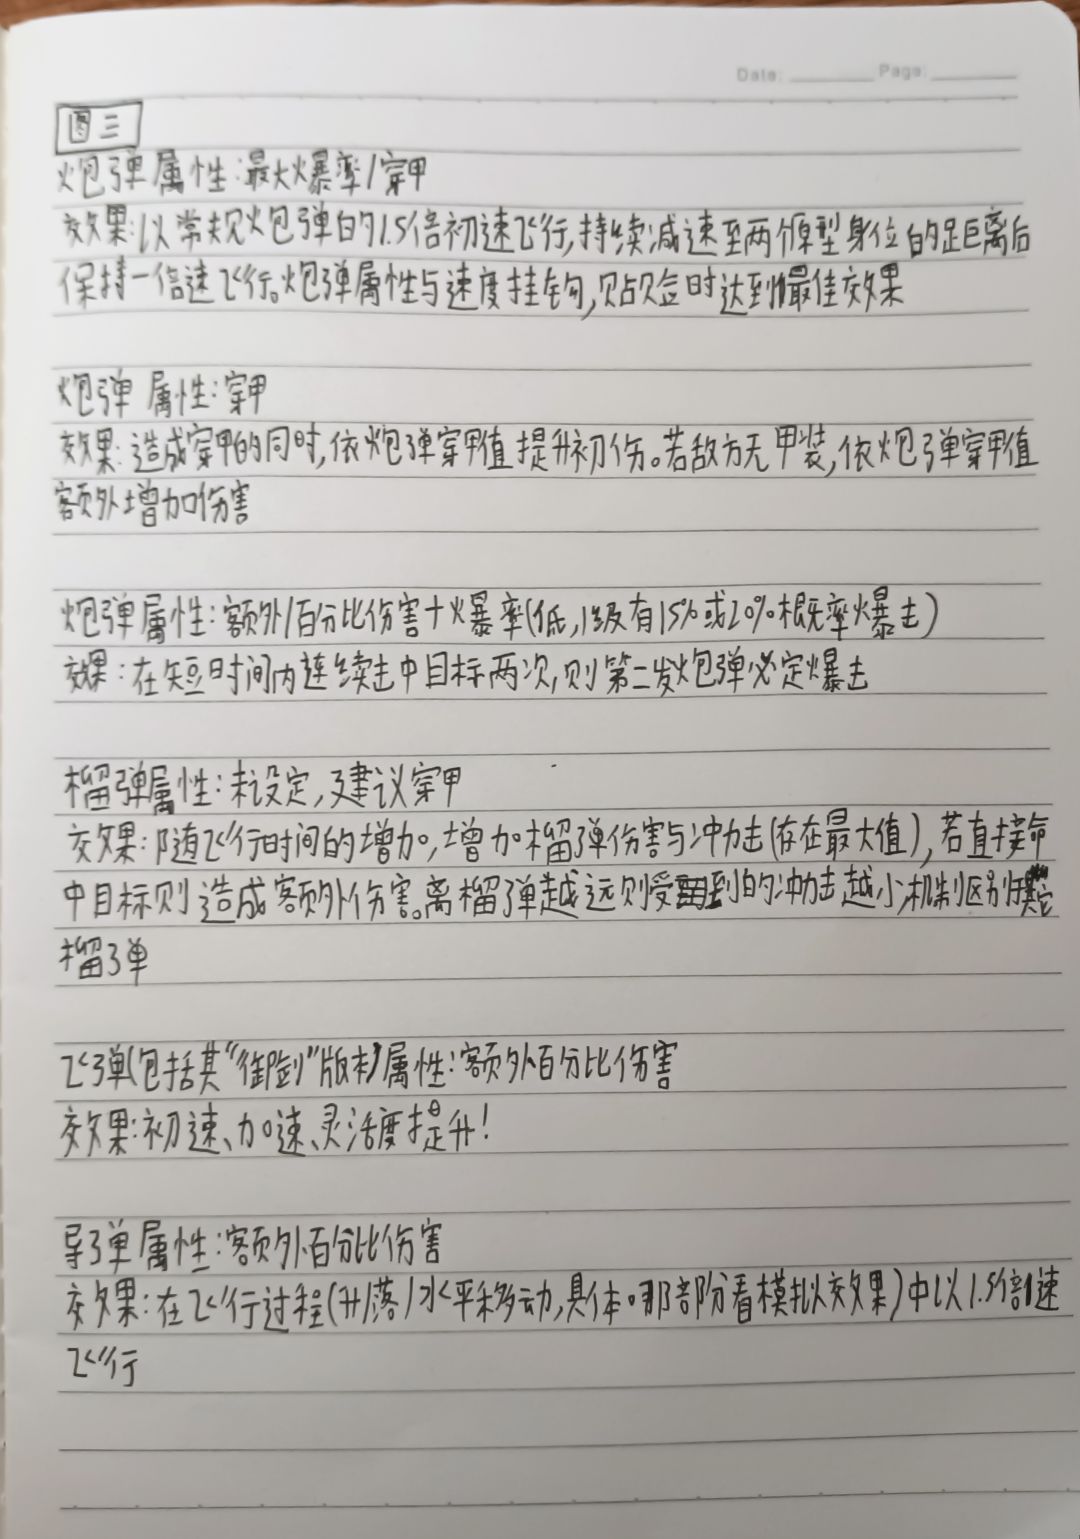 Date: Page:
图三
炮弹属性:最大爆率/穿甲
效果:以常规炮弹的1.5倍初速飞行,持续减速至两个原型身位的距离后
保持一倍速飞行。炮弹属性与速度挂钩,贴脸时达到最佳效果
炮弹属性:穿甲
效果:造成穿甲的同时,依炮弹穿甲值提升初伤。若敌方无甲装,依炮弹穿甲值
额外增加伤害
炮弹属性:额外百分比伤害+爆率(低,1级有15%或20%概率爆击)
效果:在短时间内连续击中目标两次,则第二发炮弹必定爆击
榴弹属性:未设定,建议穿甲
效果:随飞行时间的增加,增加榴弹伤害与冲力击(存在最大值),若直接命
中目标则造成额外伤害。离榴弹越远则受到的冲力击越小,机制区别其它
榴弹
飞弹(包括其“御剑”版本)属性:额外百分比伤害
效果:初速、加速、灵活度提升!
导弹属性:额外百分比伤害
效果:在飞行过程(升/落/水平移动,具体哪部份看模拟效果)中以1.5倍速
飞行